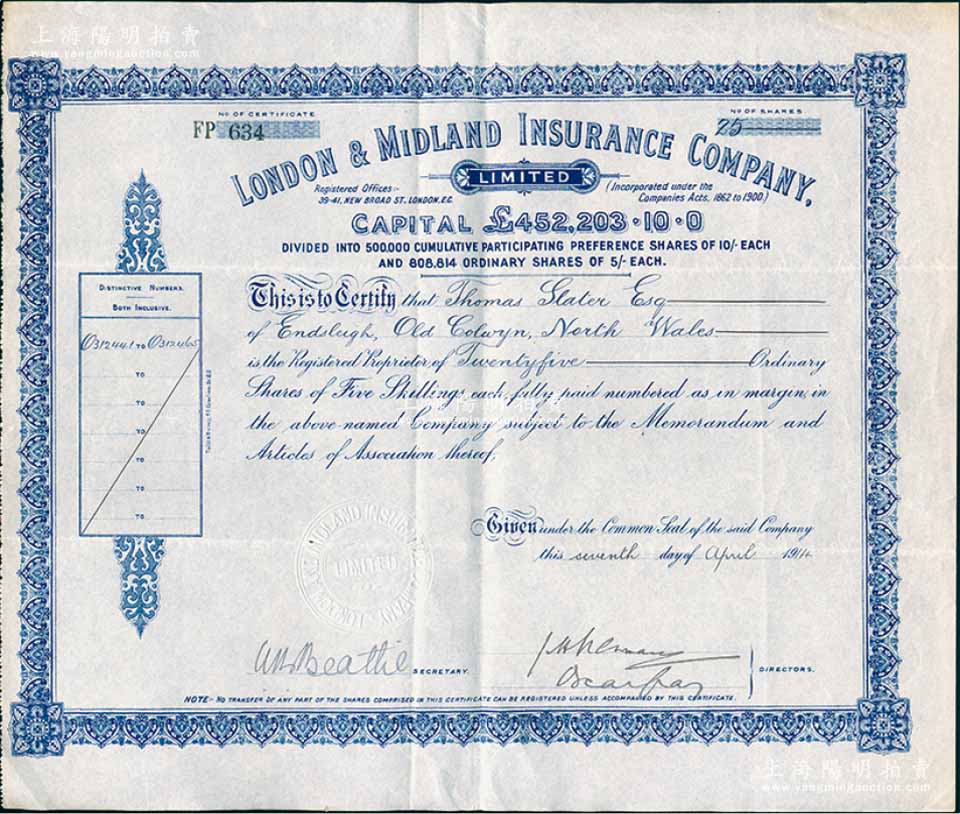 上海陽明拍賣
www.yangmingauction.com
No OF CERTIFICATE
FP 634
No OF SHARES
25
LONDON & MIDLAND INSURANCE COMPANY,
LIMITED
Registered Offices:-
39-41, NEW BROAD ST. LONDON, E.C.
(Incorporated under the
Companies Acts, 1862 to 1900)
CAPITAL £452,203·10·0
DIVIDED INTO 500,000 CUMULATIVE PARTICIPATING PREFERENCE SHARES OF 10/- EACH
AND 808,814 ORDINARY SHARES OF 5/- EACH.
DISTINCTIVE NUMBERS.
BOTH INCLUSIVE.
0312441 TO 0312465
TO
TO
TO
TO
TO
TO
This is to Certify that Thomas Slater Esq
of Endsleigh, Old Colwyn, North Wales
is the Registered Proprietor of Twentyfive Ordinary
Shares of Five Shillings each, fully paid numbered as in margin, in
the above named Company subject to the Memorandum and
Articles of Association thereof.
上海陽明拍賣
Given under the Common Seal of the said Company
this seventh day of April 1914
LONDON AND MIDLAND INSURANCE COMPANY
LIMITED
SECRETARY.
DIRECTORS.
NOTE:- NO TRANSFER OF ANY PART OF THE SHARES COMPRISED IN THIS CERTIFICATE CAN BE REGISTERED UNLESS ACCOMPANIED BY THIS CERTIFICATE.
上海陽明拍賣
www.yangmingauction.com